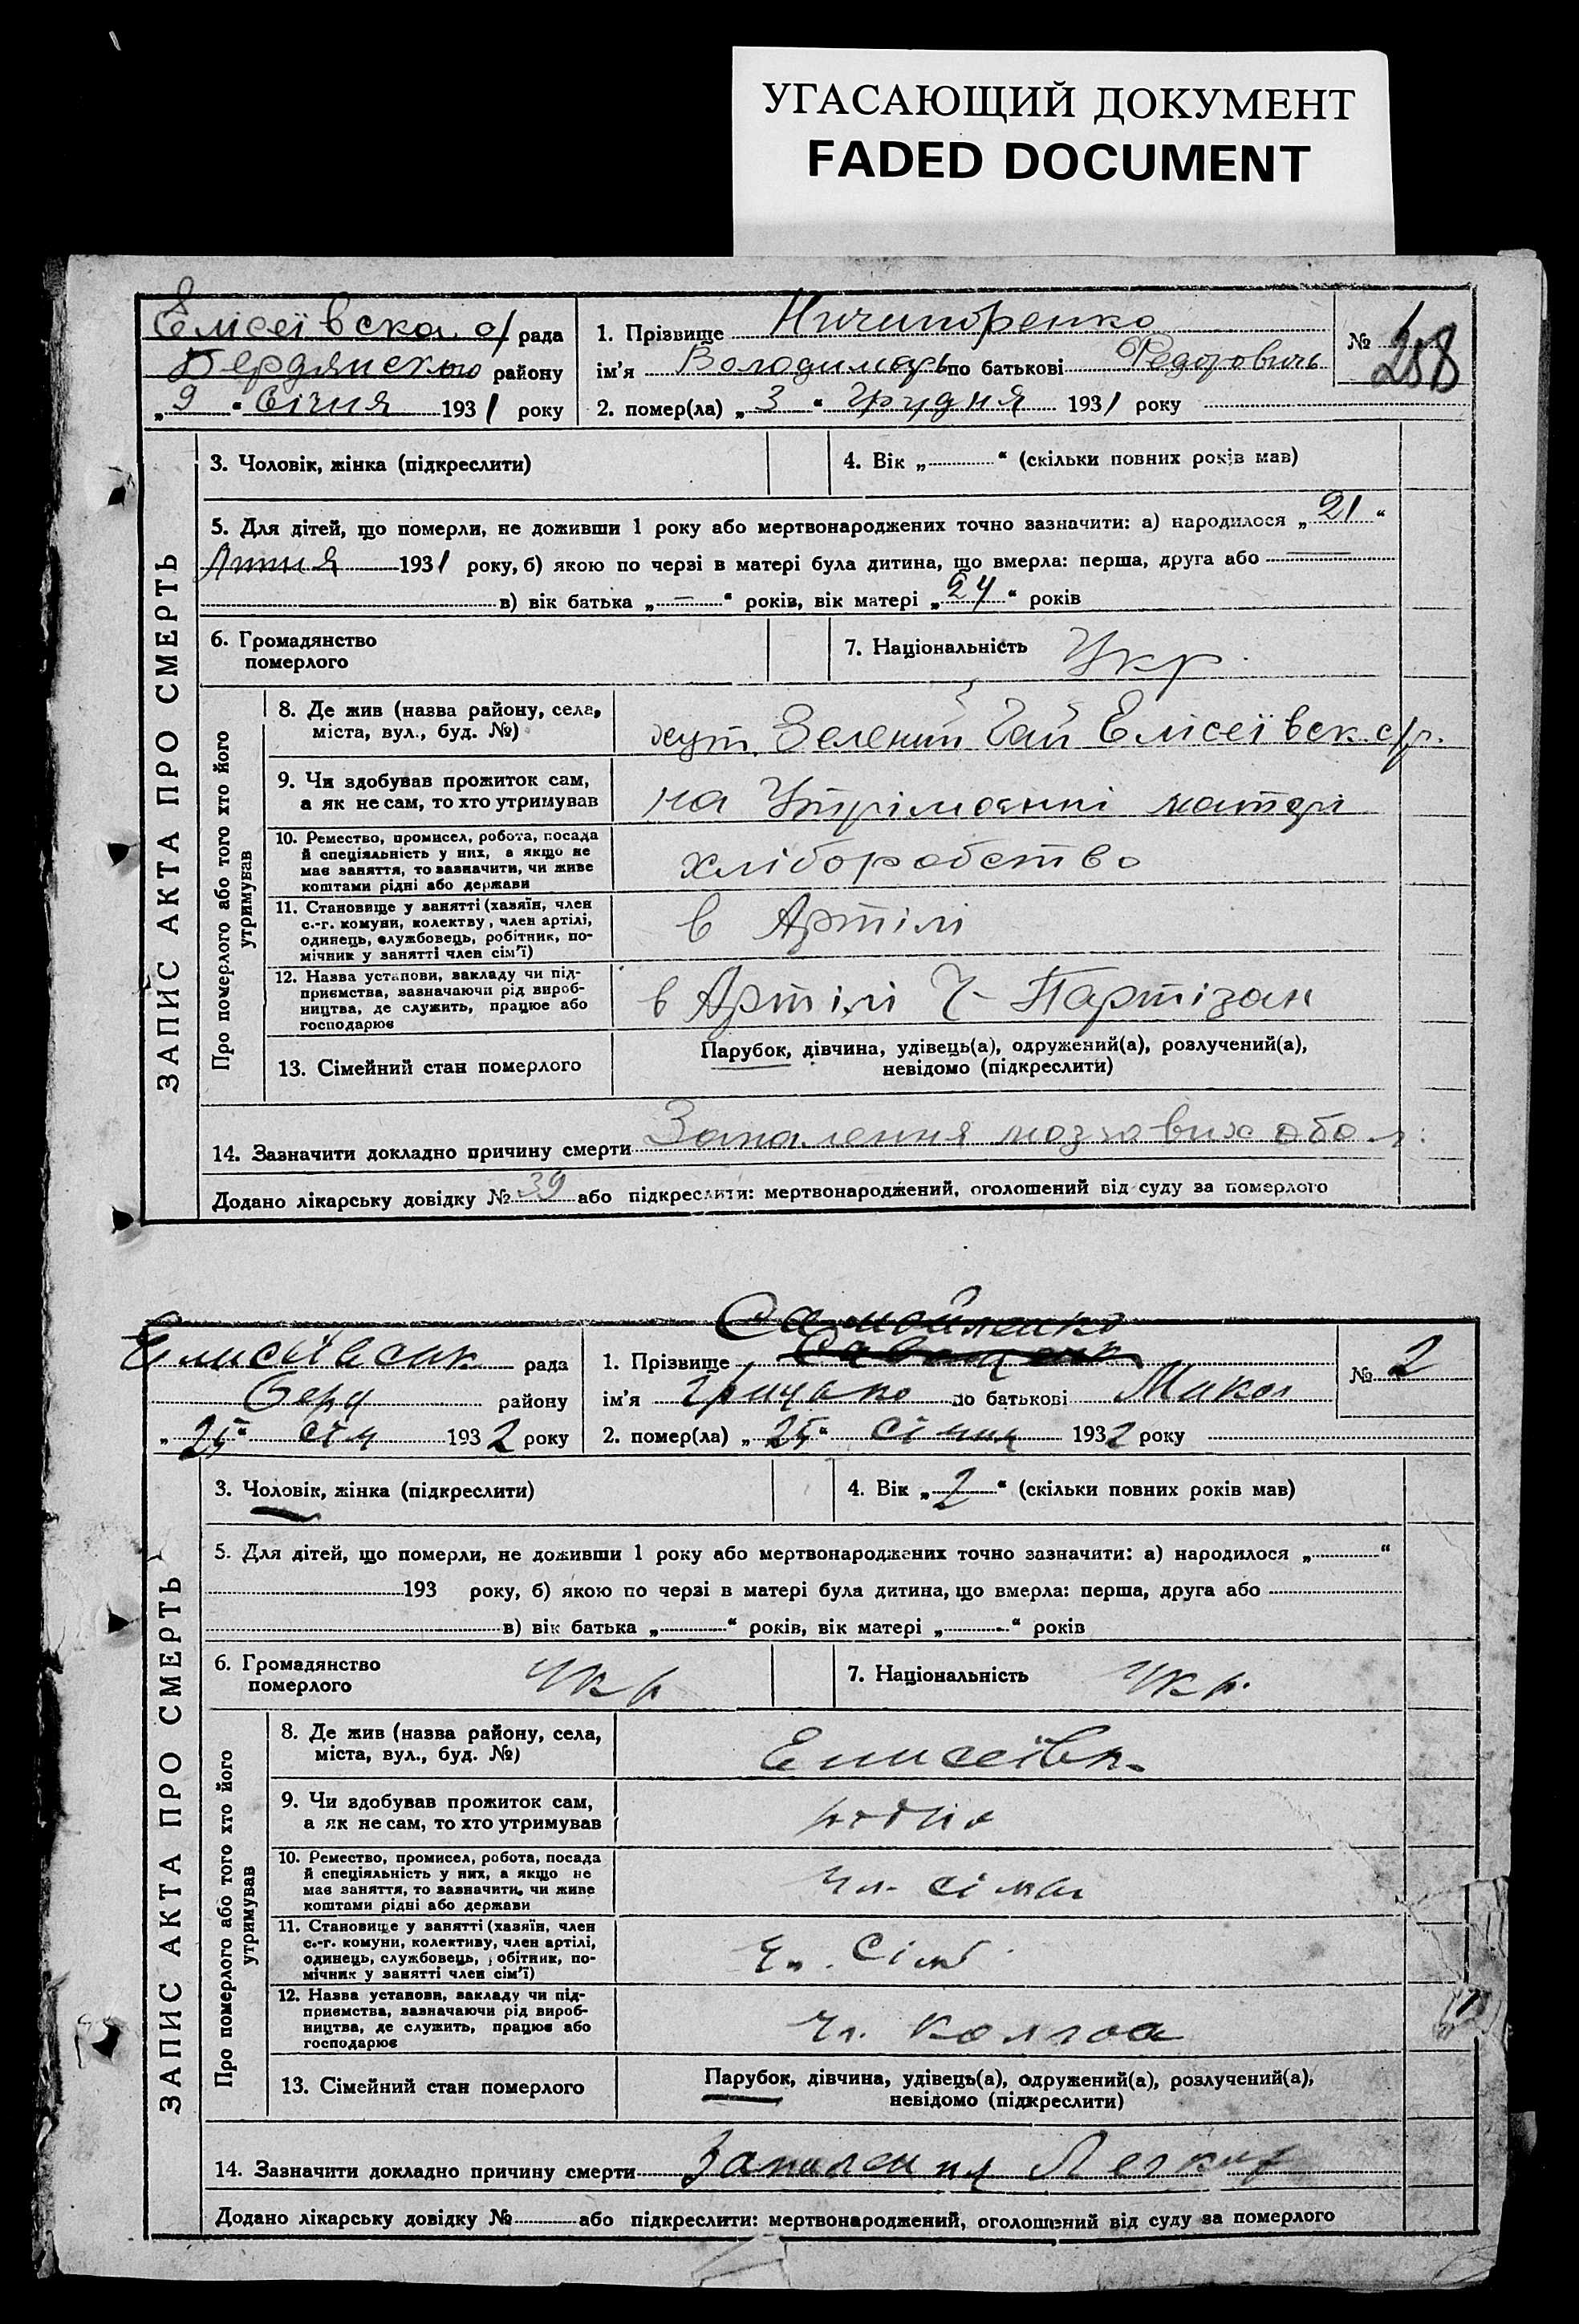 УГАСАЮЩИЙ ДОКУМЕНТ
FADED DOCUMENT
Елісеївска с/ рада
Бердянского району
„ 9 “ Січня 1931 року
1. Прізвище Ничипоренко
ім’я Володимарь по батькові Федоровичь
2. помер(ла) „ 3 “ Грудня 1931 року
№ 1
258
ЗАПИС АКТА ПРО СМЕРТЬ
3. Чоловік, жінка (підкреслити)
4. Вік „ “ (скільки повних років мав)
5. Для дітей, що померли, не доживши 1 року або мертвонароджених точно зазначити: а) народилося „ 21 “
Липня 1931 року, б) якою по черзі в матері була дитина, що вмерла: перша, друга або —
в) вік батька „ — “ років, вік матері „ 24 “ років
6. Громадянство
померлого
7. Національність Укр.
Про померлого або того хто його
утримував
8. Де жив (назва району, села,
міста, вул., буд. №)
хут. Зелений Гай Елісеївск с/р.
9. Чи здобував прожиток сам,
а як не сам, то хто утримував
на Утріманні матері
10. Ремество, промисел, робота, посада
й спеціяльність у них, а якщо не
має заняття, то зазначити, чи живе
коштами рідні або держави
хліборобство
11. Становище у занятті (хазяїн, член
с.-г. комуни, колектву, член артілі,
одинець, службовець, робітник, по-
мічник у занятті член сім’ї)
в Артілі
12. Назва установи, закладу чи під-
приємства, зазначаючи рід вироб-
ництва, де служить, працює або
господарює
в Артілі Ч- Партізан
13. Сімейний стан померлого
Парубок, дівчина, удівець(а), одружений(а), розлучений(а),
невідомо (підкреслити)
14. Зазначити докладно причину смерти Запалення мозкових обол.
Додано лікарську довідку № 39 або підкреслити: мертвонароджений, оголошений від суду за померлого
Самойленко
Елисеївськ рада
Берд району
„ 25 “ січ 1932 року
1. Прізвище
ім’я Грицько по батькові Микол
2. помер(ла) „ 25 “ січня 1932 року
№ 2
ЗАПИС АКТА ПРО СМЕРТЬ
3. Чоловік, жінка (підкреслити)
4. Вік „ 2 “ (скільки повних років мав)
5. Для дітей, що померли, не доживши 1 року або мертвонароджених точно зазначити: а) народилося „ “
193 року, б) якою по черзі в матері була дитина, що вмерла: перша, друга або
в) вік батька „ “ років, вік матері „ “ років
6. Громадянство
померлого
Укр
7. Національність Укр.
Про померлого або того хто його
утримував
8. Де жив (назва району, села,
міста, вул., буд. №)
Елисеївк.
9. Чи здобував прожиток сам,
а як не сам, то хто утримував
10. Ремество, промисел, робота, посада
й спеціяльність у них, а якщо не
має заняття, то зазначити, чи живе
коштами рідні або держави
Чл. сімї
11. Становище у занятті (хазяїн, член
с.-г. комуни, колективу, член артілі,
одинець, службовець, обітник, по-
мічник у занятті член сім’ї)
Чл. Сім
12. Назва установи, закладу чи під-
приємства, зазначаючи рід вироб-
ництва, де служить, працює або
господарює
Чл. колгоа
13. Сімейний стан померлого
Парубок, дівчина, удівець(а), одружений(а), розлучений(а),
невідомо (підкреслити)
14. Зазначити докладно причину смерти Запалення Легких
Додано лікарську довідку № або підкреслити: мертвонароджений, оголошений від суду за померлого